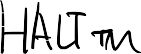 HALT TM